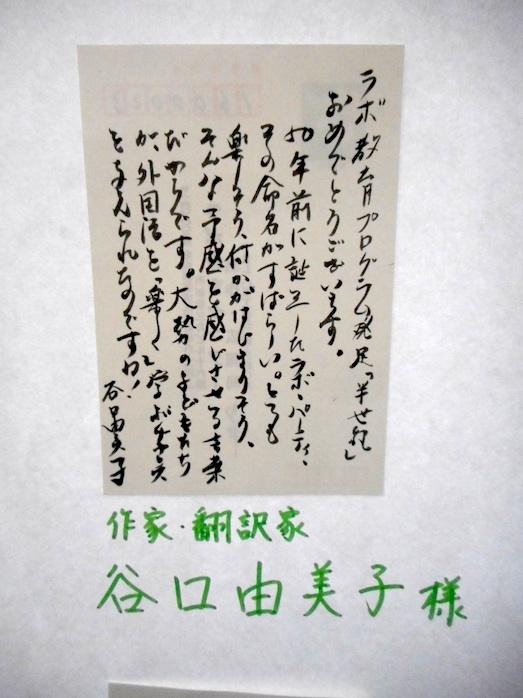 ラボ教育プログラム発足「半世紀」
おめでとうございます。
50年前に誕生したラボ・パーティ、
その命名がすばらしい。とても
楽しそう、何かがはじまりそう、
そんな予感を感じさせる言葉
だからです。大勢の子どもたち
が、外国語を「楽しく」学ぶ喜び
を与えられたのですね!
谷口由美子
作家・翻訳家
谷口由美子様